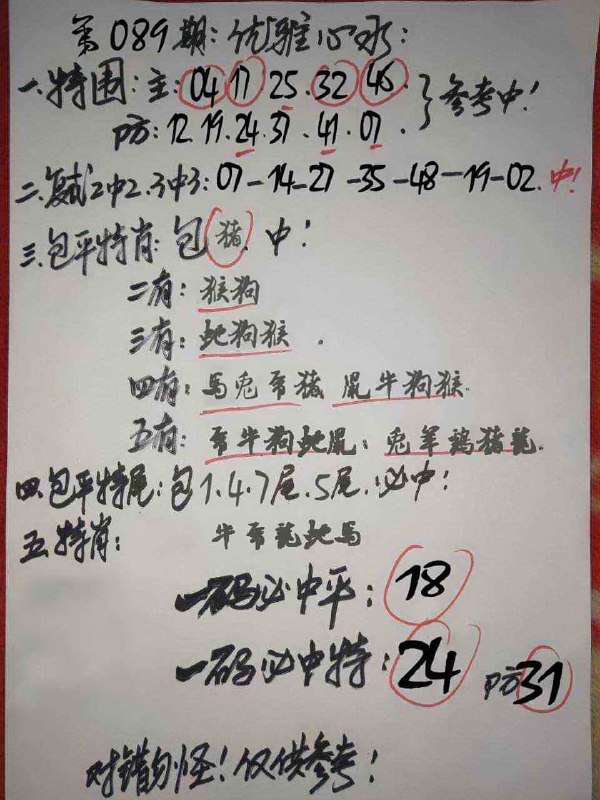 第089期:优雅心水:
一.特围:主:04 17 25.32 46
防:12.19.24.37.41.07.}参考中!
二.复试2中2.3中3:07-14-27-35-48-19-02.中!
三.包平特肖:包猪.中!
二有:猴狗
三有:蛇狗猴.
四有:馬兔帝猪 鼠牛狗猴.
五有:帝牛狗蛇鼠;兔羊鸡猪龍.
四.包平特尾:包1.4.7尾.5尾.必中!
五.特肖: 牛帝龍蛇馬
一码必中平:18
一码必中特:24 防31
对错勿怪!仅供参考!